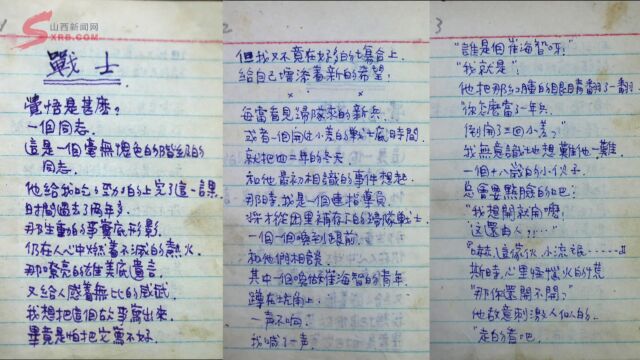 山西新闻网
SXRB.COM
1
戰士
覺悟是甚麼?
一個同志.
這是一個毫無愧色的階級的
同志.
他給我們上完了這一課.
時間過去了兩年多.
那生動的事實底形影,
仍在人心中燃着不滅的熱火.
那嘹亮的雄美底遺言.
又給人感着無比的威砥.
我想把這個故事寫出來.
畢竟是怕把它寫不好.
2
但我又不竟在好多的場合上.
給自己增添着新的希望!
每當看見歸隊來的新兵.
或者一個開過小差的戰士底時間.
就把四三年的冬天
和他最初相識的事件想起.
那時.我是一個連指導員.
將才從團里補下的歸隊戰士
一個一個喚到跟前.
和他們相談
其中一個喚做崔海智的青年.
蹲在坑角上.
一声不响.
我喊了一声.
3
"誰是個崔海智呀!"
"我就是"!
他把那紅腫的眼睛翻了一翻.
"你怎麼當了一年兵.
倒開了三回小差?"
我無意識地想難他一難.
一個十八歲的小伙子.
總會要點臉的吧!
"我想開就開哩!
"这還由人?!…"
"啃.這傢伙.小流氓……"
斯時.心里怪惱火的付莧
"那你還開不開?"
他故意刺激人似的.
"走的看吧.